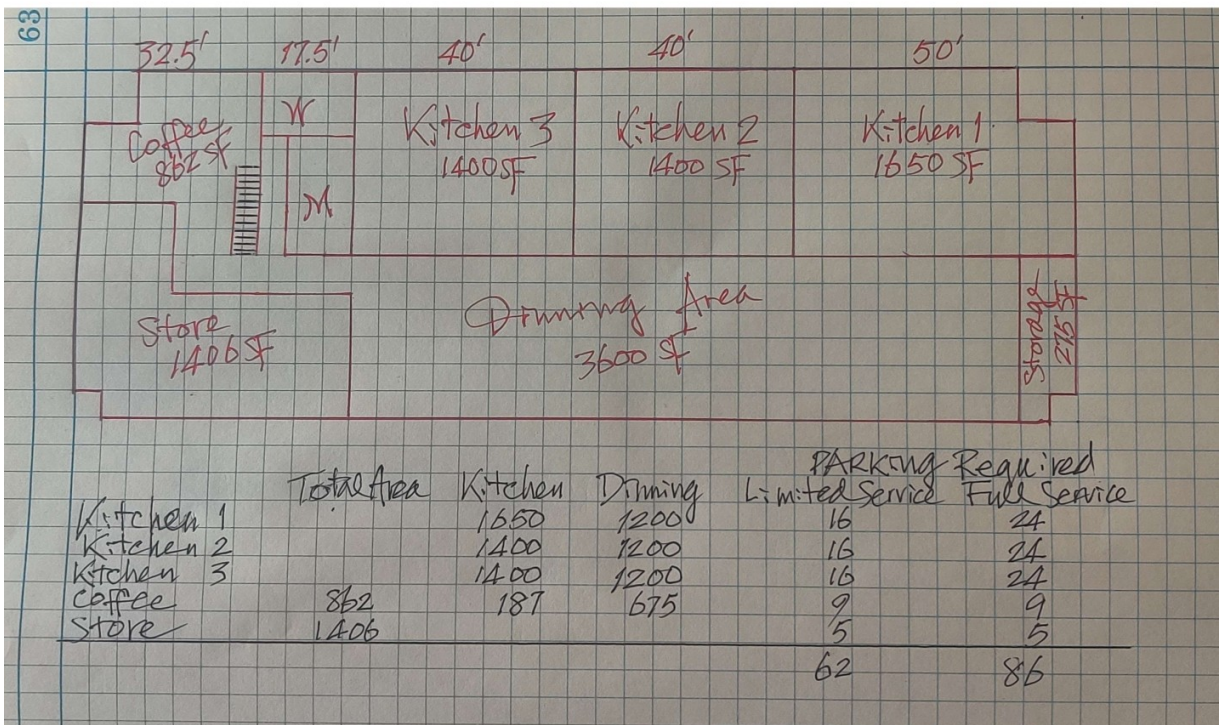 63
32.5' 17.5' 40' 40' 50'
Coffee
862 SF
W
M
Kitchen 3
1400 SF
Kitchen 2
1400 SF
Kitchen 1
1650 SF
Store
1406 SF
Dinning Area
3600 SF
Storage
275 SF
PARKing Required
Total Area Kitchen Dinning Limited Service Full Service
Kitchen 1 1650 1200 16 24
Kitchen 2 1400 1200 16 24
Ktchen 3 1400 1200 16 24
Coffee 862 187 675 9 9
Store 1406 5 5
62 86